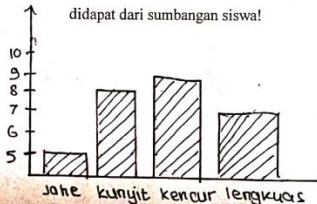 didapat dari sumbangan siswa!
10
9
8
7
6
5
Jahe kunyit kencur lengkuas